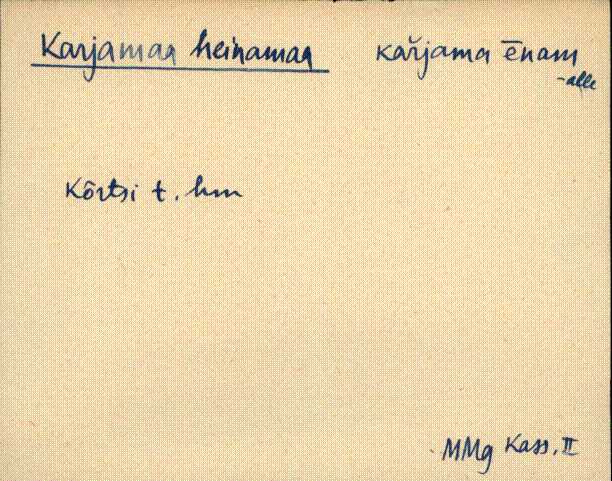 Karjamaa heinamaa kaŕjama ēnam
-alle
Kõrtsi t. hm
MMg Kass. II